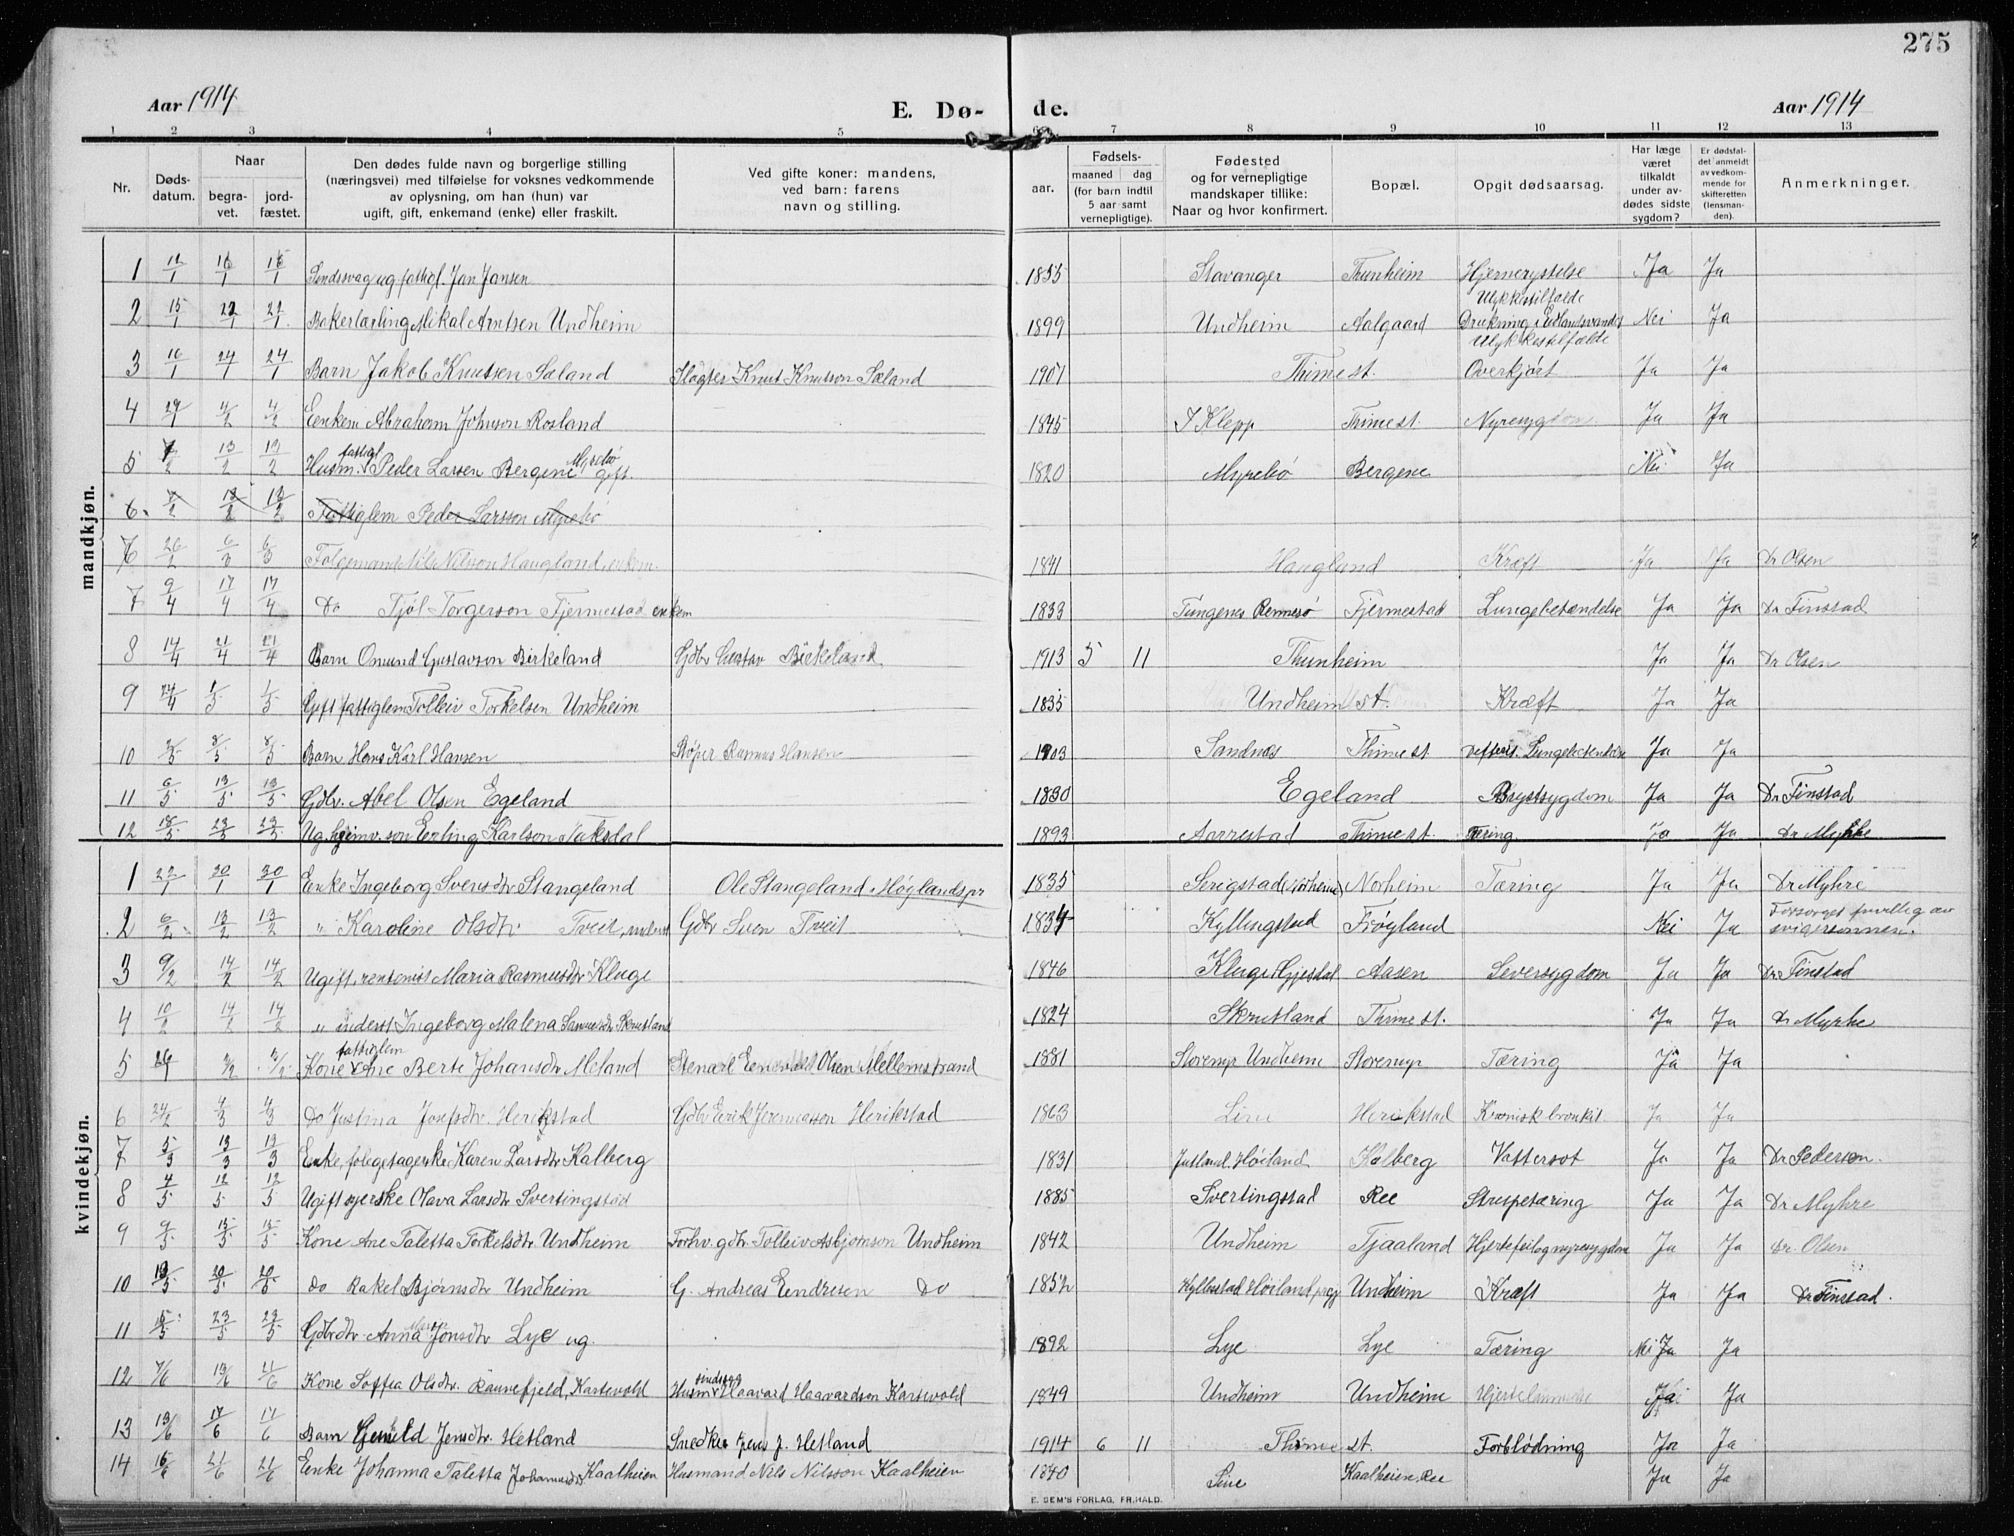 275
Aar 1914
E. Dø-
de.
Aar 1914
1 2 3 4 5 6 7 8 9 10 11 12 13
Nr.
Døds-
datum.
Naar
begra-
vet.
jord-
fæstet.
Den dødes fulde navn og borgerlige stilling
(næringsvei) med tilføielse for voksnes vedkommende
av oplysning, om han (hun) var
ugift, gift, enkemand (enke) eller fraskilt.
Ved gifte koner: mandens,
ved barn: farens
navn og stilling.
aar.
Fødsels-
maaned dag
(for barn indtil
5 aar samt
vernepligtige).
Fødested
og for vernepligtige
mandskaper tillike:
Naar og hvor konfirmert.
Bopæl.
Opgit dødsaarsag.
Har læge
været
tilkaldt
under av-
dødes sidste
sygdom?
Er dødsfal-
det anmeldt
av vedkom-
mende for
skifteretten
(lensman-
den).
Anmerkninger.
mandkjøn.
1 Sindssvag ug fattigl. Jan Jansen 1855 Stavanger Thunheim Hjernerystelse Ja Ja
Ulykkestilfælde
2 15/1 22/1 22/1 Bakerlærling Mikal Arntsen Undheim 1899 Undheim Aalgaard Drukning i Edlandsvandet Nei Ja
Ulykkestilfælde
3 16/1 24/1 24/1 Barn Jakob Knutsen Sæland Slagter Knut Knutson Sæland 1907 Thime st. Overkjørt Ja Ja
4 29/1 4/2 4/2 Enkem Abraham Johnson Rosland 1845 I Klepp Thime st. Nyresygdom Ja Ja
5 13/2 13/2 Husm. fattigl Peder Larsen Bergene Myrebø gift. 1820 Myrebø Bergene Nei Ja
6. 13/2 13/2 Fattiglem Peder Larsson Myrebø
6 26/2 6/3 6/3 Folgemand Nils Nilsson Haugland, enkem. 1841 Haugland Kræft Ja Ja Dr Olsen
7 9/4 17/4 17/4 Do Tjøl Torgerson Fjermestad enkem 1833 Tungenes Rennesø Fjermestad Lungebetændelse Ja Ja Dr Finstad
8 14/4 21/4 21/4 Barn Omund Gustavson Birkeland Gdbr Gustav Birkeland 1913 5 11 Thunheim Ja Ja Dr Olsen
9 24/4 1/5 1/5 Gift fattiglem Tolleiv Torkelsen Undheim 1835 Undheim st. Kræft Ja Ja
10 8/5 8/5 Barn Hans Karl Hansen Støper Rasmus Hansen 1903 Sandnes Thime st. Lungebetændelse Ja Ja
11 6/5 13/5 13/5 Gdbr. Abel Olsen Egeland 1830 Egeland Brystsygdom Ja Ja Dr Finstad
12 18/5 23/5 23/5 Ug. hjemv. son Erling Karlson Taksdal 1893 Aarrestad Thime st. Tæring Ja Ja Dr Myhre
kvindekjøn.
1 22/1 30/1 30/1 Enke Ingeborg Svensdtr Stangeland Ole Stangeland Høylandspr 1835 Serigstad (Norheim) Norheim Tæring Ja Ja Dr Myhre
2 6/2 13/2 13/2 " Karoline Olsdtr Tveit, underst Gdbr Sven Tveit 1834 Kyllingstad Frøyland Nei Ja Forsørget frivillig av
svigersønnen.
3 9/2 14/2 14/2 Ugift, rentenist Maria Rasmusdtr Kluge 1846 Kluge i Gjestal Aasen Leversygdom Ja Ja Dr Finstad
4 10/2 14/2 14/2 " underst Ingeborg Malena Samuelsdtr Skrutland 1824 Skrutland Thime st. Ja Ja Dr Myhre
5 26/1 2/2 2/2 Kone fattiglem Ane Berte Johansdtr Meland Stenarb Olsen Mellemstrand 1881 Storemyr Undheim Storemyr Tæring Ja Ja
6 24/2 4/3 4/3 Do Justina Josefsdtr Herikstad Gdbr Eerik Jeremiasson Herikstad 1863 Line Herikstad Kronisk bronkit Ja Ja
7 5/3 13/3 13/3 Enke, folgetagerske Karen Larsdtr Kalberg 1831 Jutland Høiland Kalberg Vattersot Ja Ja Dr Pedersen.
8 4/5 12/5 12/5 Ugift syerske Olava Larsdtr Svertingstad 1885 Svertingstad Ree Strupetæring Ja Ja Dr Myhre
9 9/5 15/5 15/5 Kone Ane Taletta Torkelsdtr Undheim Forhv. gdbr. Tolleiv Asbjørnson Undheim 1842 Undheim Tjaaland Hjertefeil og nyresygdom Ja Ja Dr. Olsen
10 13/5 20/5 20/5 Do Rakel Bjørnsdtr Undheim G. Andreas Eendresen Do 1852 Kyllestad Høiland prgj Undheim Kræft Ja Ja Dr Finstad.
11 15/5 23/5 23/5 Gdbrdtr. Anna Jonsdtr Lye ug. 1892 Lye Lye Tæring Nei Ja Ja
12 7/6 13/6 Kone Soffia Olsdtr. Raunefjeld, Kartevold Husm sindssyg Haavard Haavardson Kartevold 1849 Undheim Undheim Hjertelammelse Ja Ja
13 13/6 17/6 17/6 Barn Gerüld Jensdtr. Hetland Snedker Jens J. Hetland 1914 6 11 Thime st. Forblødning Ja Ja
14 15/6 21/6 21/6 Eenke Johanna Taletta Johannesdtr Kaalheien Husmand Nils Nilsson Kaalheien 1840 Line Kaalheien Ree Ja Ja
E. SEM'S FORLAG, FR.HALD.